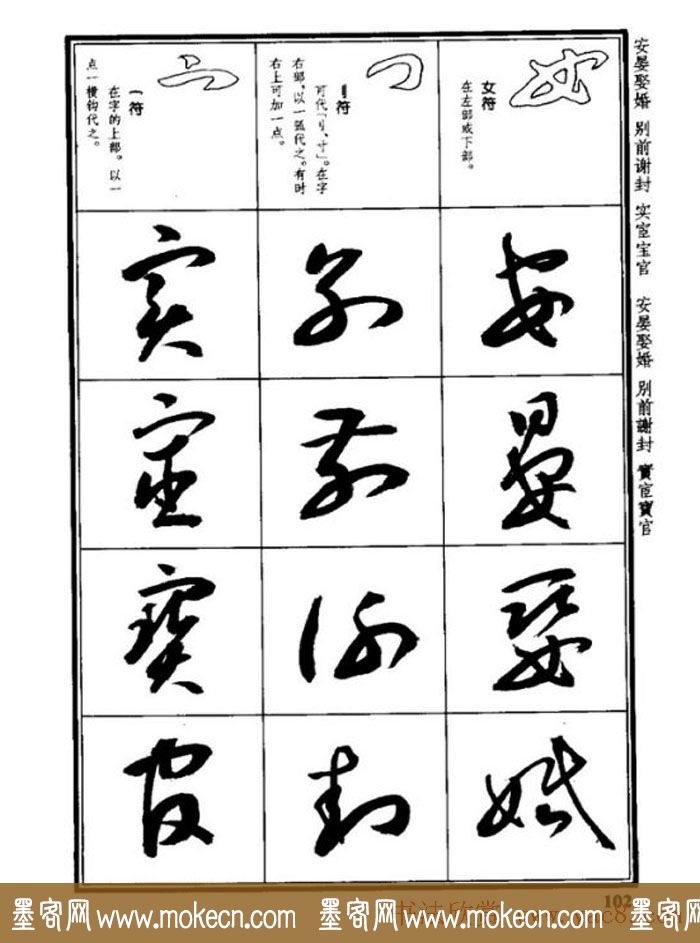 安晏娶婚 别前谢封 实宦宝官 安晏娶婚 别前謝封 實宦寶官
女符
在左部或下部。
刂符
可代「刂、寸」。在字
右部。以一弧代之。有时
右上可加一点。
宀符
在字的上部。以一
点一横钩代之。
安
晏
娶
婚
别
前
谢
封
实
宦
宝
官
102
墨客网 www.mokecn.com 墨客网 www.mokecn.com